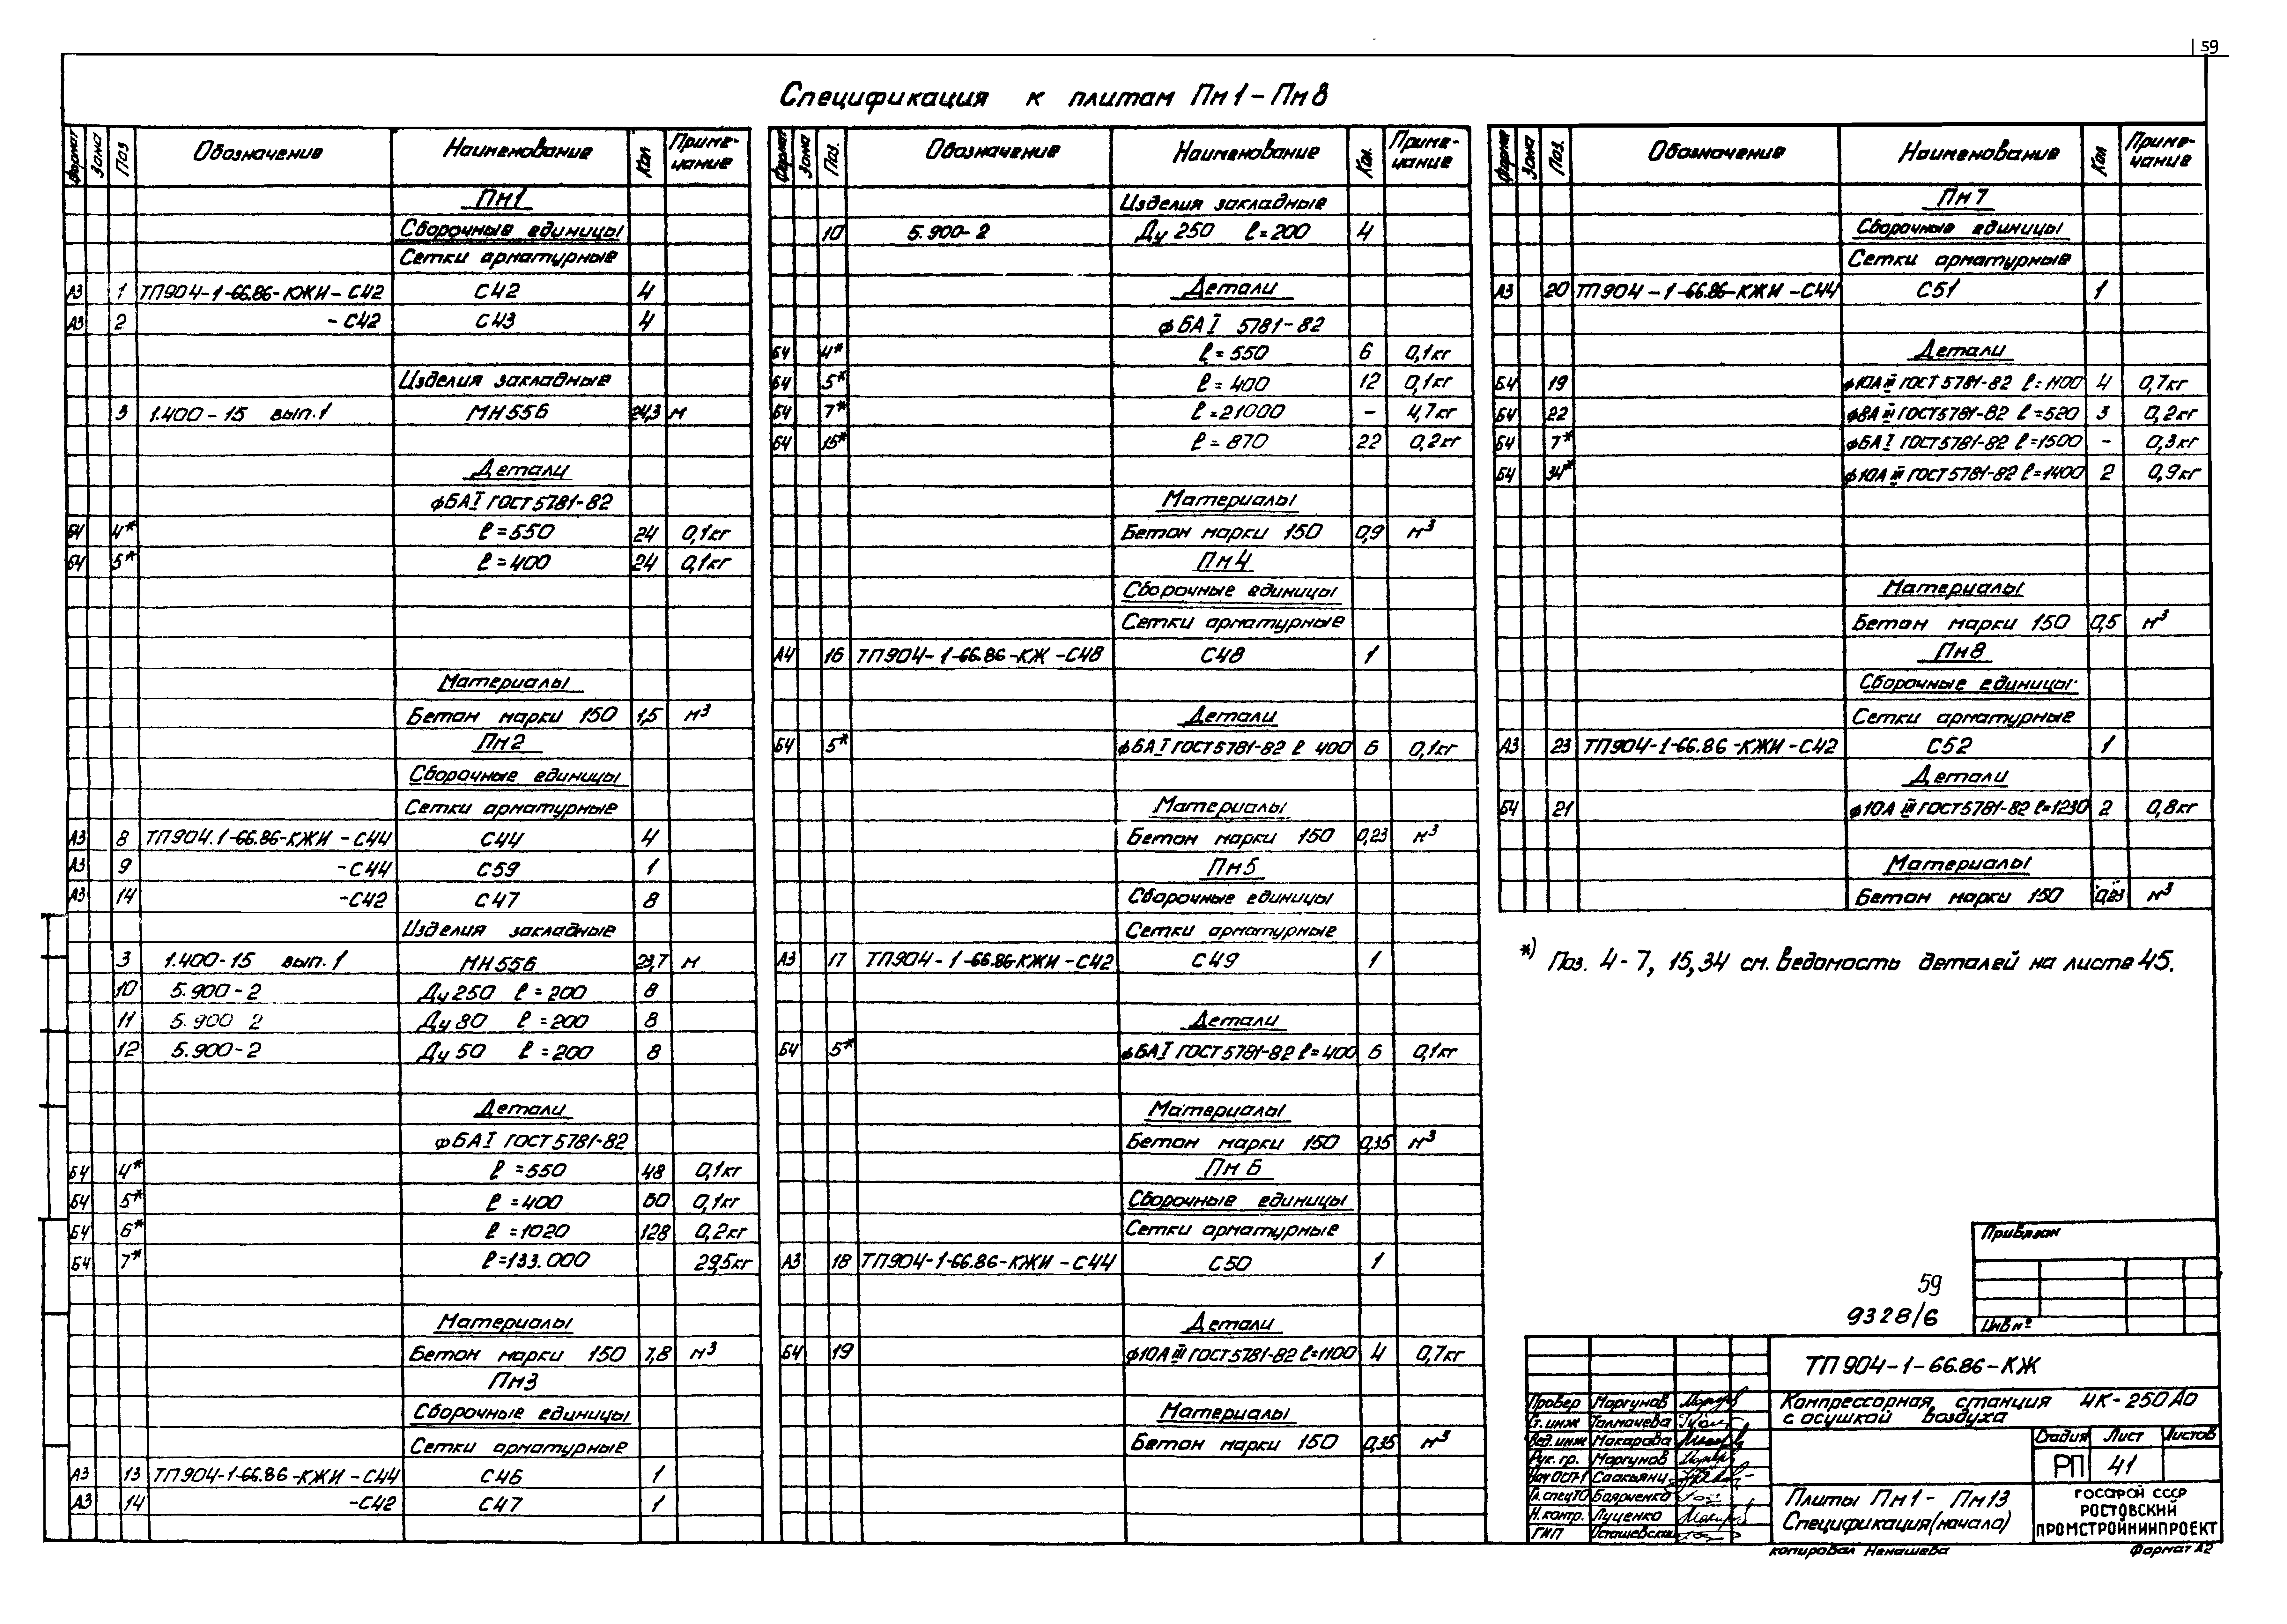 59
Спецификация к плитам Пм1-Пм8
Формат Зона Поз Обозначение Наименование Кол Приме-чание
Пм1
Сборочные единицы
Сетки арматурные
А3 1 ТП904-1-66.86-КЖИ-С42 С42 4
А3 2 -С42 С43 4
Изделия закладные
3 1.400-15 вып.1 МН556 24,3 м
Детали
ф6АI ГОСТ5781-82
Б4 4* ℓ=550 24 0,1кг
Б4 5* ℓ=400 24 0,1кг
Материалы
Бетон марки 150 1,5 м³
Пм2
Сборочные единицы
Сетки арматурные
А3 8 ТП904.1-66.86-КЖИ-С44 С44 4
А3 9 -С44 С59 1
А3 14 -С42 С47 8
Изделия закладные
3 1.400-15 вып.1 МН556 23,7 м
10 5.900-2 Ду250 ℓ=200 8
11 5.900 2 Ду80 ℓ=200 8
12 5.900-2 Ду50 ℓ=200 8
Детали
ф6АI ГОСТ5781-82
Б4 4* ℓ=550 48 0,1кг
Б4 5* ℓ=400 60 0,1кг
Б4 6* ℓ=1020 128 0,2кг
Б4 7* ℓ=133.000 29,5кг
Материалы
Бетон марки 150 7,8 м³
Пм3
Сборочные единицы
Сетки арматурные
А3 13 ТП904-1-66.86-КЖИ-С44 С46 1
А3 14 -С42 С47 1
Формат Зона Поз. Обозначение Наименование Кол. Приме-чание
Изделия закладные
10 5.900-2 Ду250 ℓ=200 4
Детали
ф6АI 5781-82
Б4 4* ℓ=550 6 0,1кг
Б4 5* ℓ=400 12 0,1кг
Б4 7* ℓ=21000 - 4,7кг
Б4 15* ℓ=870 22 0,2кг
Материалы
Бетон марки 150 0,9 м³
Пм4
Сборочные единицы
Сетки арматурные
А4 16 ТП904-1-66.86-КЖ-С48 С48 1
Детали
Б4 5* ф6АI ГОСТ5781-82 ℓ 400 6 0,1кг
Материалы
Бетон марки 150 0,23 м³
Пм5
Сборочные единицы
Сетки арматурные
А3 17 ТП904-1-66.86-КЖИ-С42 С49 1
Детали
Б4 5* ф6АI ГОСТ5781-82 ℓ=400 6 0,1кг
Материалы
Бетон марки 150 0,35 м³
Пм6
Сборочные единицы
Сетки арматурные
А3 18 ТП904-1-66.86-КЖИ-С44 С50 1
Детали
Б4 19 ф10АIII ГОСТ5781-82 ℓ=1100 4 0,7кг
Материалы
Бетон марки 150 0,35 м³
Формат Зона Поз. Обозначение Наименование Кол Приме-чание
Пм7
Сборочные единицы
Сетки арматурные
А3 20 ТП904-1-66.86-КЖИ-С44 С51 1
Детали
Б4 19 ф10АIII ГОСТ5781-82 ℓ=1100 4 0,7кг
Б4 22 ф8АIII ГОСТ5781-82 ℓ=520 3 0,2кг
Б4 7* ф6АI ГОСТ5781-82 ℓ=1500 - 0,3кг
Б4 34* ф10АIII ГОСТ5781-82 ℓ=1400 2 0,9кг
Материалы
Бетон марки 150 0,5 м³
Пм8
Сборочные единицы
Сетки арматурные
А3 23 ТП904-1-66.86-КЖИ-С42 С52 1
Детали
Б4 21 ф10АIII ГОСТ5781-82 ℓ=1230 2 0,8кг
Материалы
Бетон марки 150 0,23 м³
*) Поз. 4-7, 15,34 см. ведомость деталей на листе 45.
Привязан
Инв№
59
9328/6
ТП904-1-66.86-КЖ
Компрессорная станция 4К-250АО
с осушкой воздуха
Стадия Лист Листов
РП 41
Плиты Пм1-Пм13
Спецификация(начало)
ГОССТРОЙ СССР
РОСТОВСКИЙ
ПРОМСТРОЙНИИПРОЕКТ
Провер Моргунов
Ст.инж Толмачева
Вед.инж Макарова
Рук.гр. Моргунов
Нач ОСП-1 Саакьянц
Н.контр. Луценко
ГИП
копировал Ненашева
Формат А2